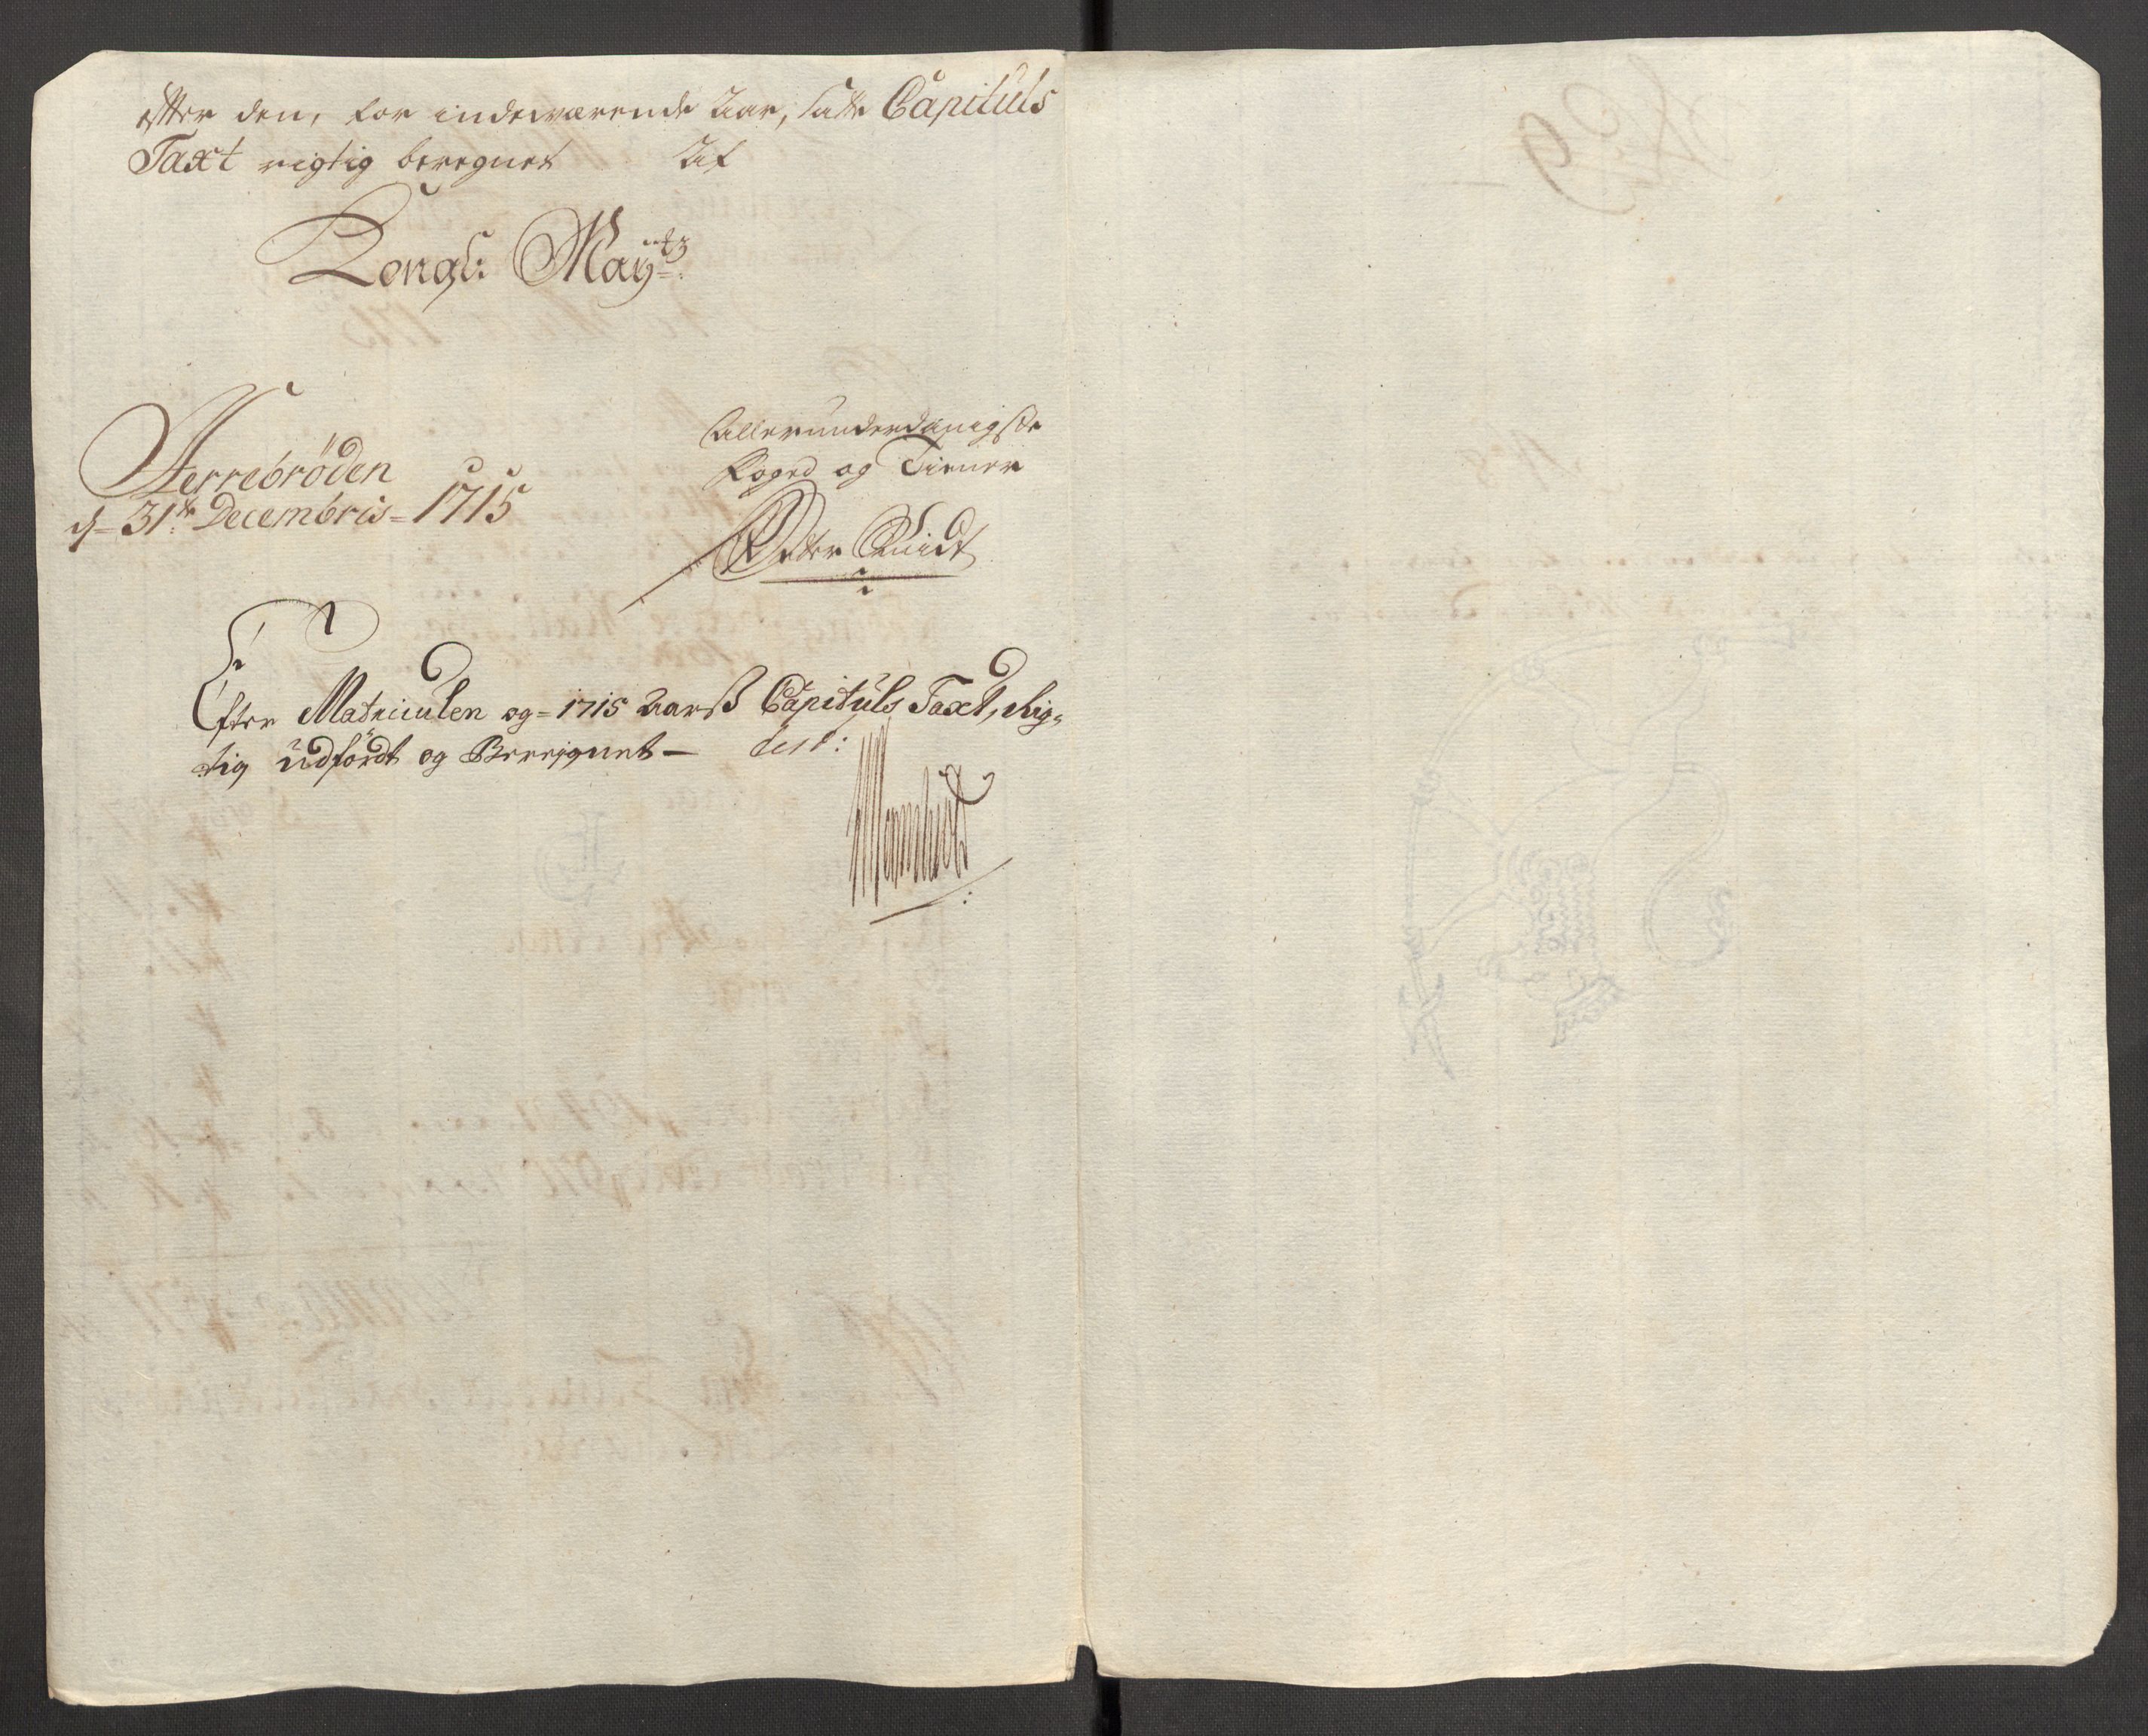 efter den, for indeværende Aar, satte Capituls
Taxt rigtig beregnet Af
Kongl: Mayts
Herrebröden
d= 31te Decembris= 1715
Allerunderdanigste
Foged og Tiener
Peter
Efter Matriculen og= 1715 Aarß Capituls Taxt, Rig=
tig üdfördt og Bereignet— test: